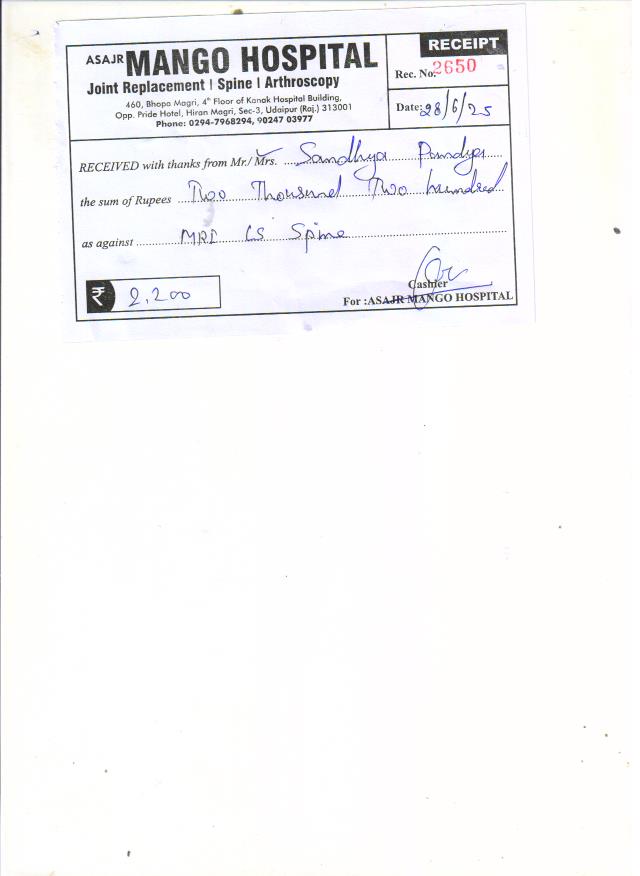 ASAJR MANGO HOSPITAL
Joint Replacement | Spine | Arthroscopy
460, Bhopa Magri, 4th Floor of Kanak Hospital Building,
Opp. Pride Hotel, Hiran Magri, Sec-3, Udaipur (Raj.) 313001
Phone: 0294-7968294, 90247 03977
RECEIPT
Rec. No. 2650
Date: 28/6/25
RECEIVED with thanks from Mr./Mrs. Sandhya Pandya
the sum of Rupees Two Thousand Two hundred
as against MRI LS Spine
₹ 2,200
Cashier
For : ASAJR MANGO HOSPITAL